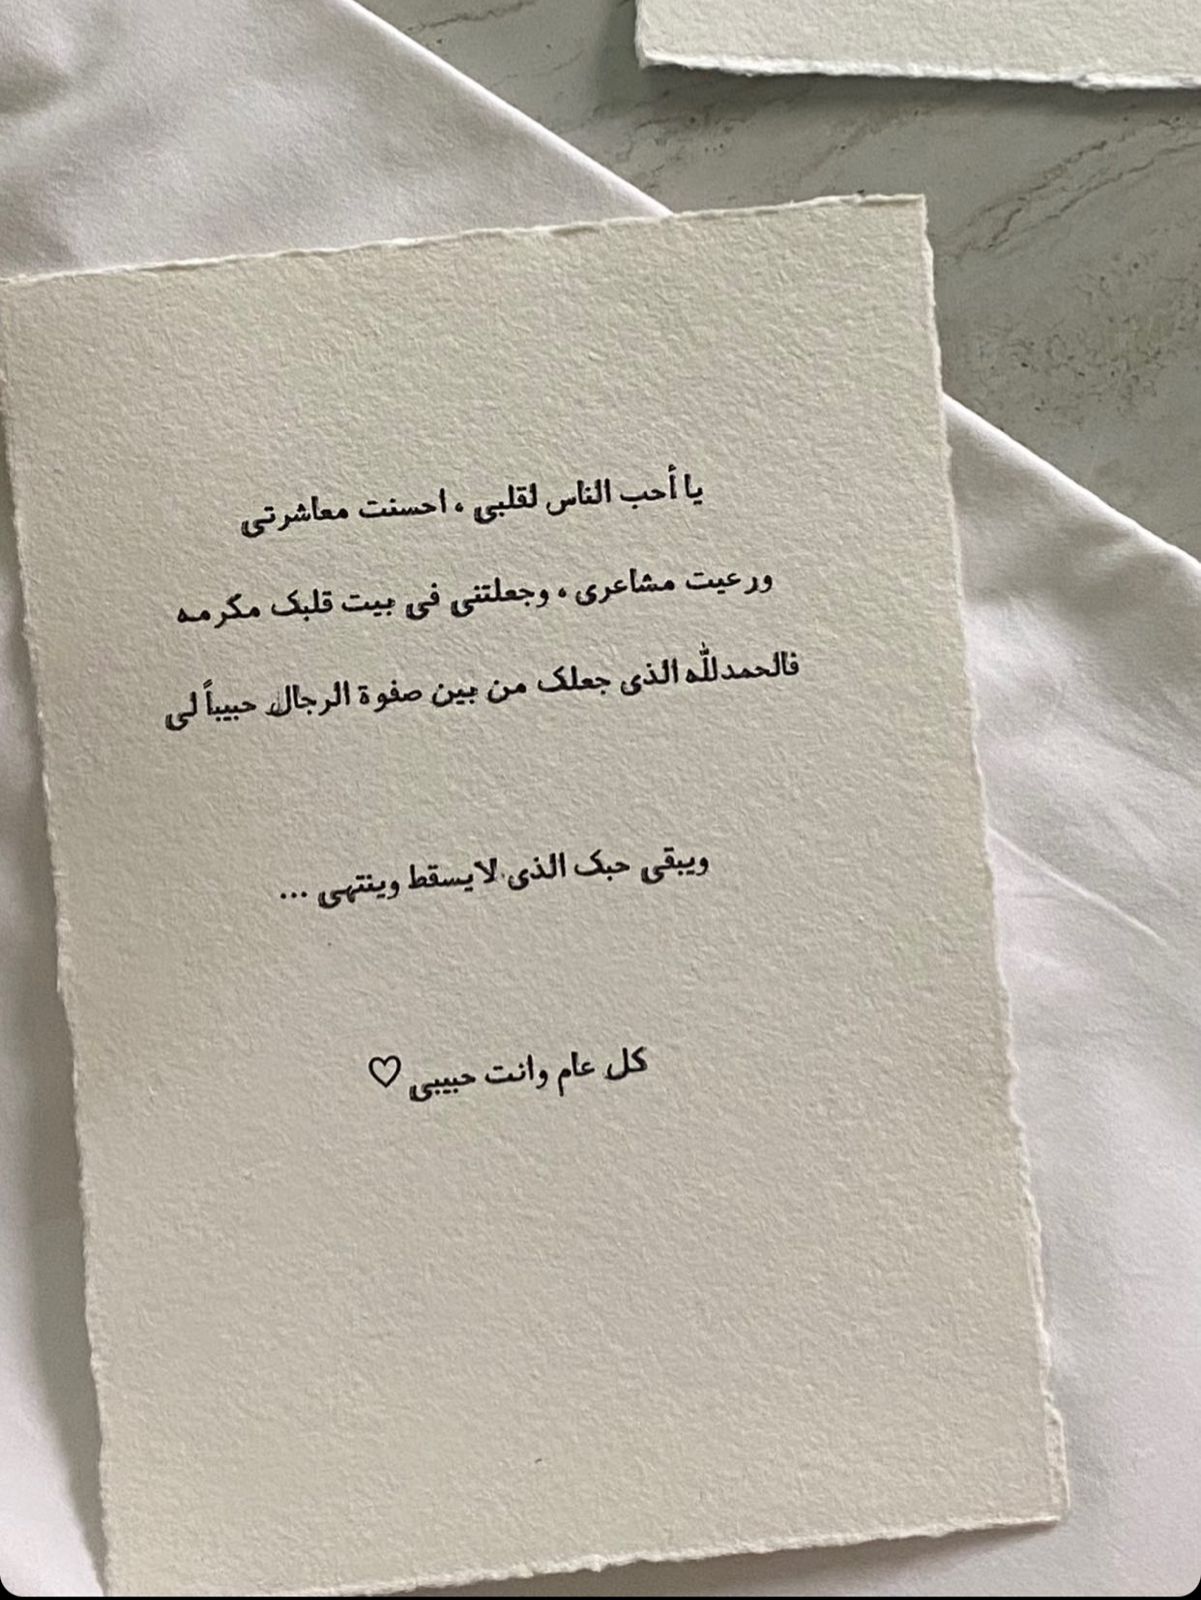 يا أحب الناس لقلبي ، احسنت معاشرتي
ورعيت مشاعري ، وجعلتني في بيت قلبك مكرمه
فالحمدلله الذي جعلك من بين صفوة الرجال حبيباً لي
ويبقى حبك الذي لايسقط وينتهي ...
كل عام وانت حبيبي ♡